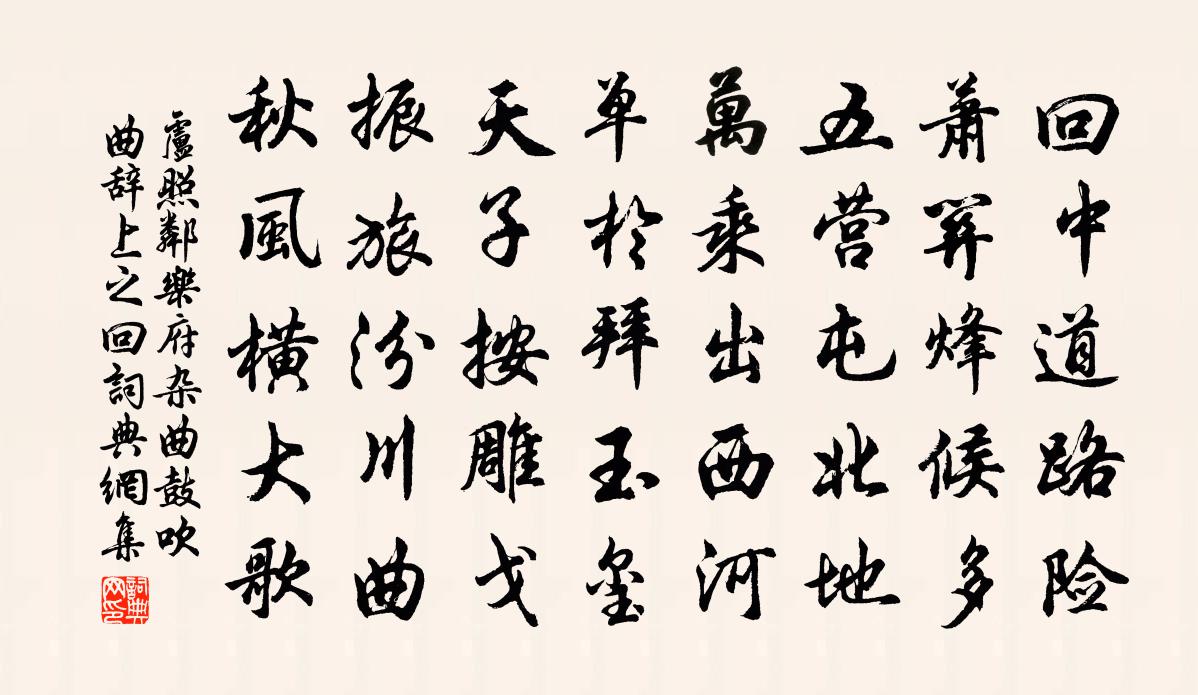 回中道路险
萧関烽候多
五营屯北地
萬乘出西河
单於拜玉玺
天子按雕戈
振旅汾川曲
秋風横大歌
盧照鄰樂府杂曲鼓吹
曲辞上之回詞典網集
詞典
网印